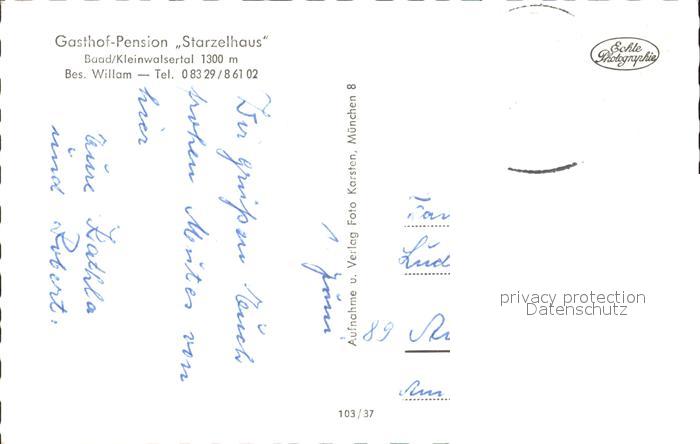 Gasthof-Pension „Starzelhaus“
Baad/Kleinwalsertal 1300 m
Bes. Willam — Tel. 0 83 29 / 8 61 02
Echte
Photographie
1 Juni
Wir grüßen Euch
frohen Mutes von
hier
Eure Kathla
und Robert.
Aufnahme u. Verlag Foto Karsten, München 8
Lud
89
Am
103/37
privacy protection
Datenschutz